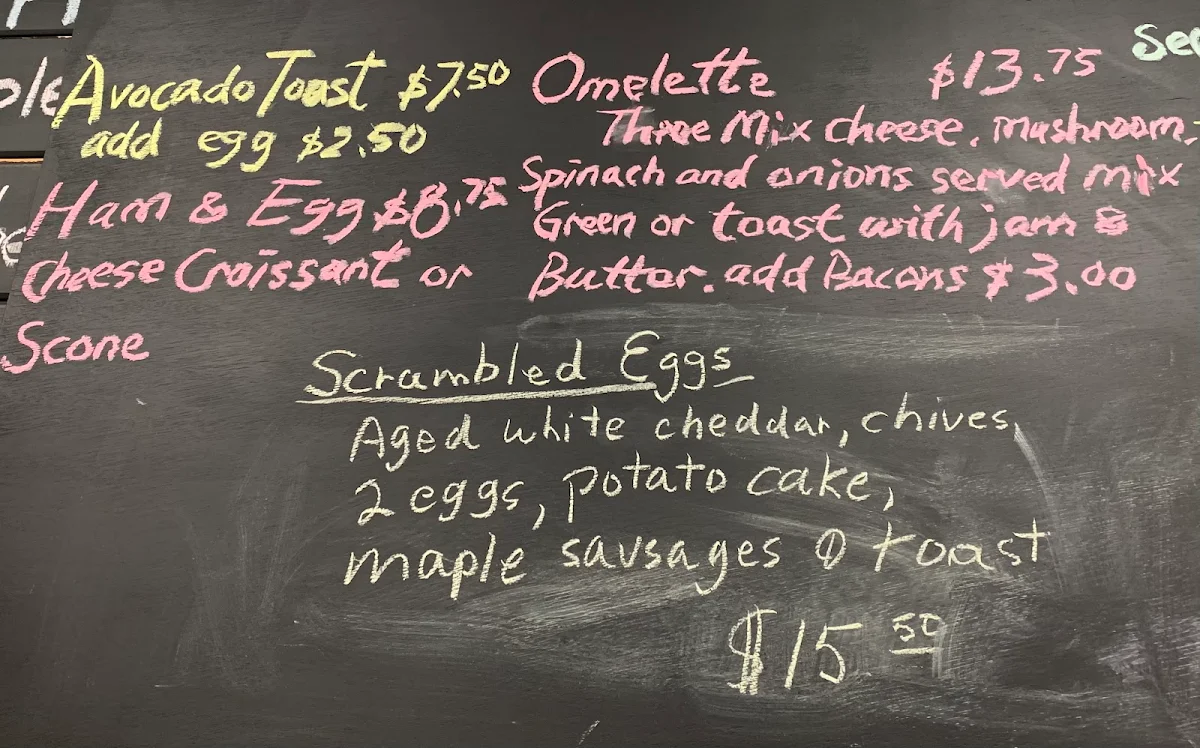 Avocado Toast $7.50
add egg $2.50
Ham & Egg $8.75
Cheese Croissant or
Scone
Omelette $13.75
Three Mix cheese, mushroom,
Spinach and onions served mix
Green or toast with jam &
Butter. add Bacons $3.00
Scrambled Eggs
Aged white cheddar, chives,
2 eggs, potato cake,
maple sausages & toast
$15.50